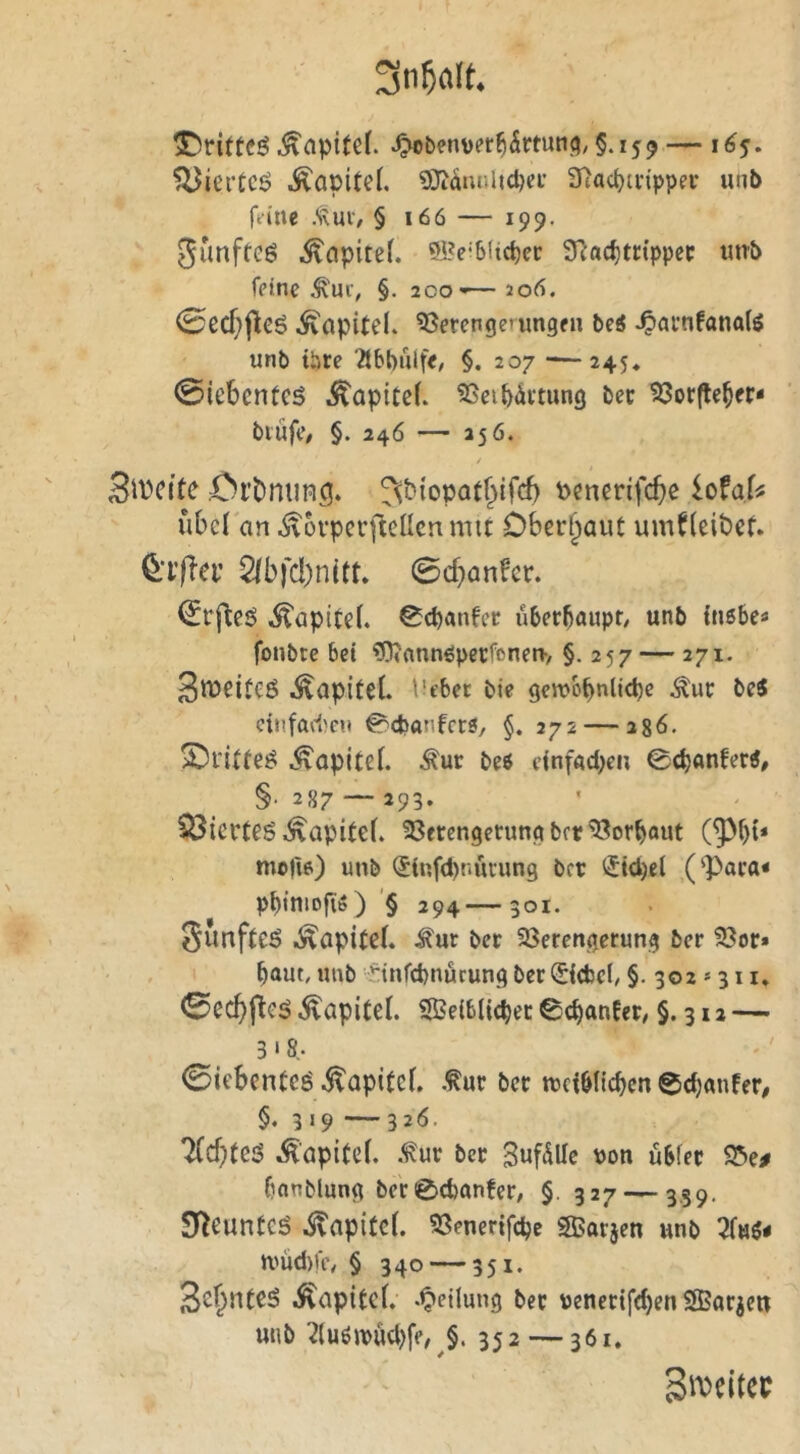 Inhalt.
Drittes Kapitel. Hodenverhärtung, §. 159 — 165.
Viertes Kapitel. Männlicher Nachtripper und
seine Kur, § 166 — 199.
Fünftes Kapitel. Weiblicher Nachtripper und
seine Kur, §. 200 — 206.
Sechstes Kapitel. Verengerungen des Harnkanals
und ihre Abhülfe, §. 207 — 245.
Siebentes Kapitel. Verhärtung der Vorsteher-
drüse, §. 246 — 256.
Zweite Ordnung. Idiopathisch venerische Lokal-
übel an Körperstellen mit Oberhaut umkleidet.
Erster Abschnitt. Schanker.
Erstes Kapitel. Schanker überhaupt, und insbe-
sondre bei Mannspersonen, §. 257 — 271.
Zweites Kapitel. Ueber die gewöhnliche Kur des
einfachen Schankers, §. 272 — 286.
Drittes Kapitel. Kur des einfachen Schankers,
§. 287 — 293.
Viertes Kapitel. Verengerung der Vorhaut (Phi-
mosis) und Einschnürung der Eichel (Para-
phimosis) § 294 — 301.
Fünftes Kapitel. Kur der Verengerung der Vor-
haut, und Einschnürung der Eichel, §. 302 - 311.
Sechstes Kapitel. Weiblicher Schanker, §. 312 —
318.
Siebentes Kapitel. Kur der weiblichen Schanker,
§. 319 — 326.
Achtes Kapitel. Kur der Zufälle von übler Be-
handlung der Schanker, §. 327 — 339.
Neuntes Kapitel. Venerische Warzen und Aus-
wüchse, § 340 — 351.
Zehntes Kapitel. Heilung der venerischen Warzen
und Auswüchse, §. 352 — 361.
Zweiter